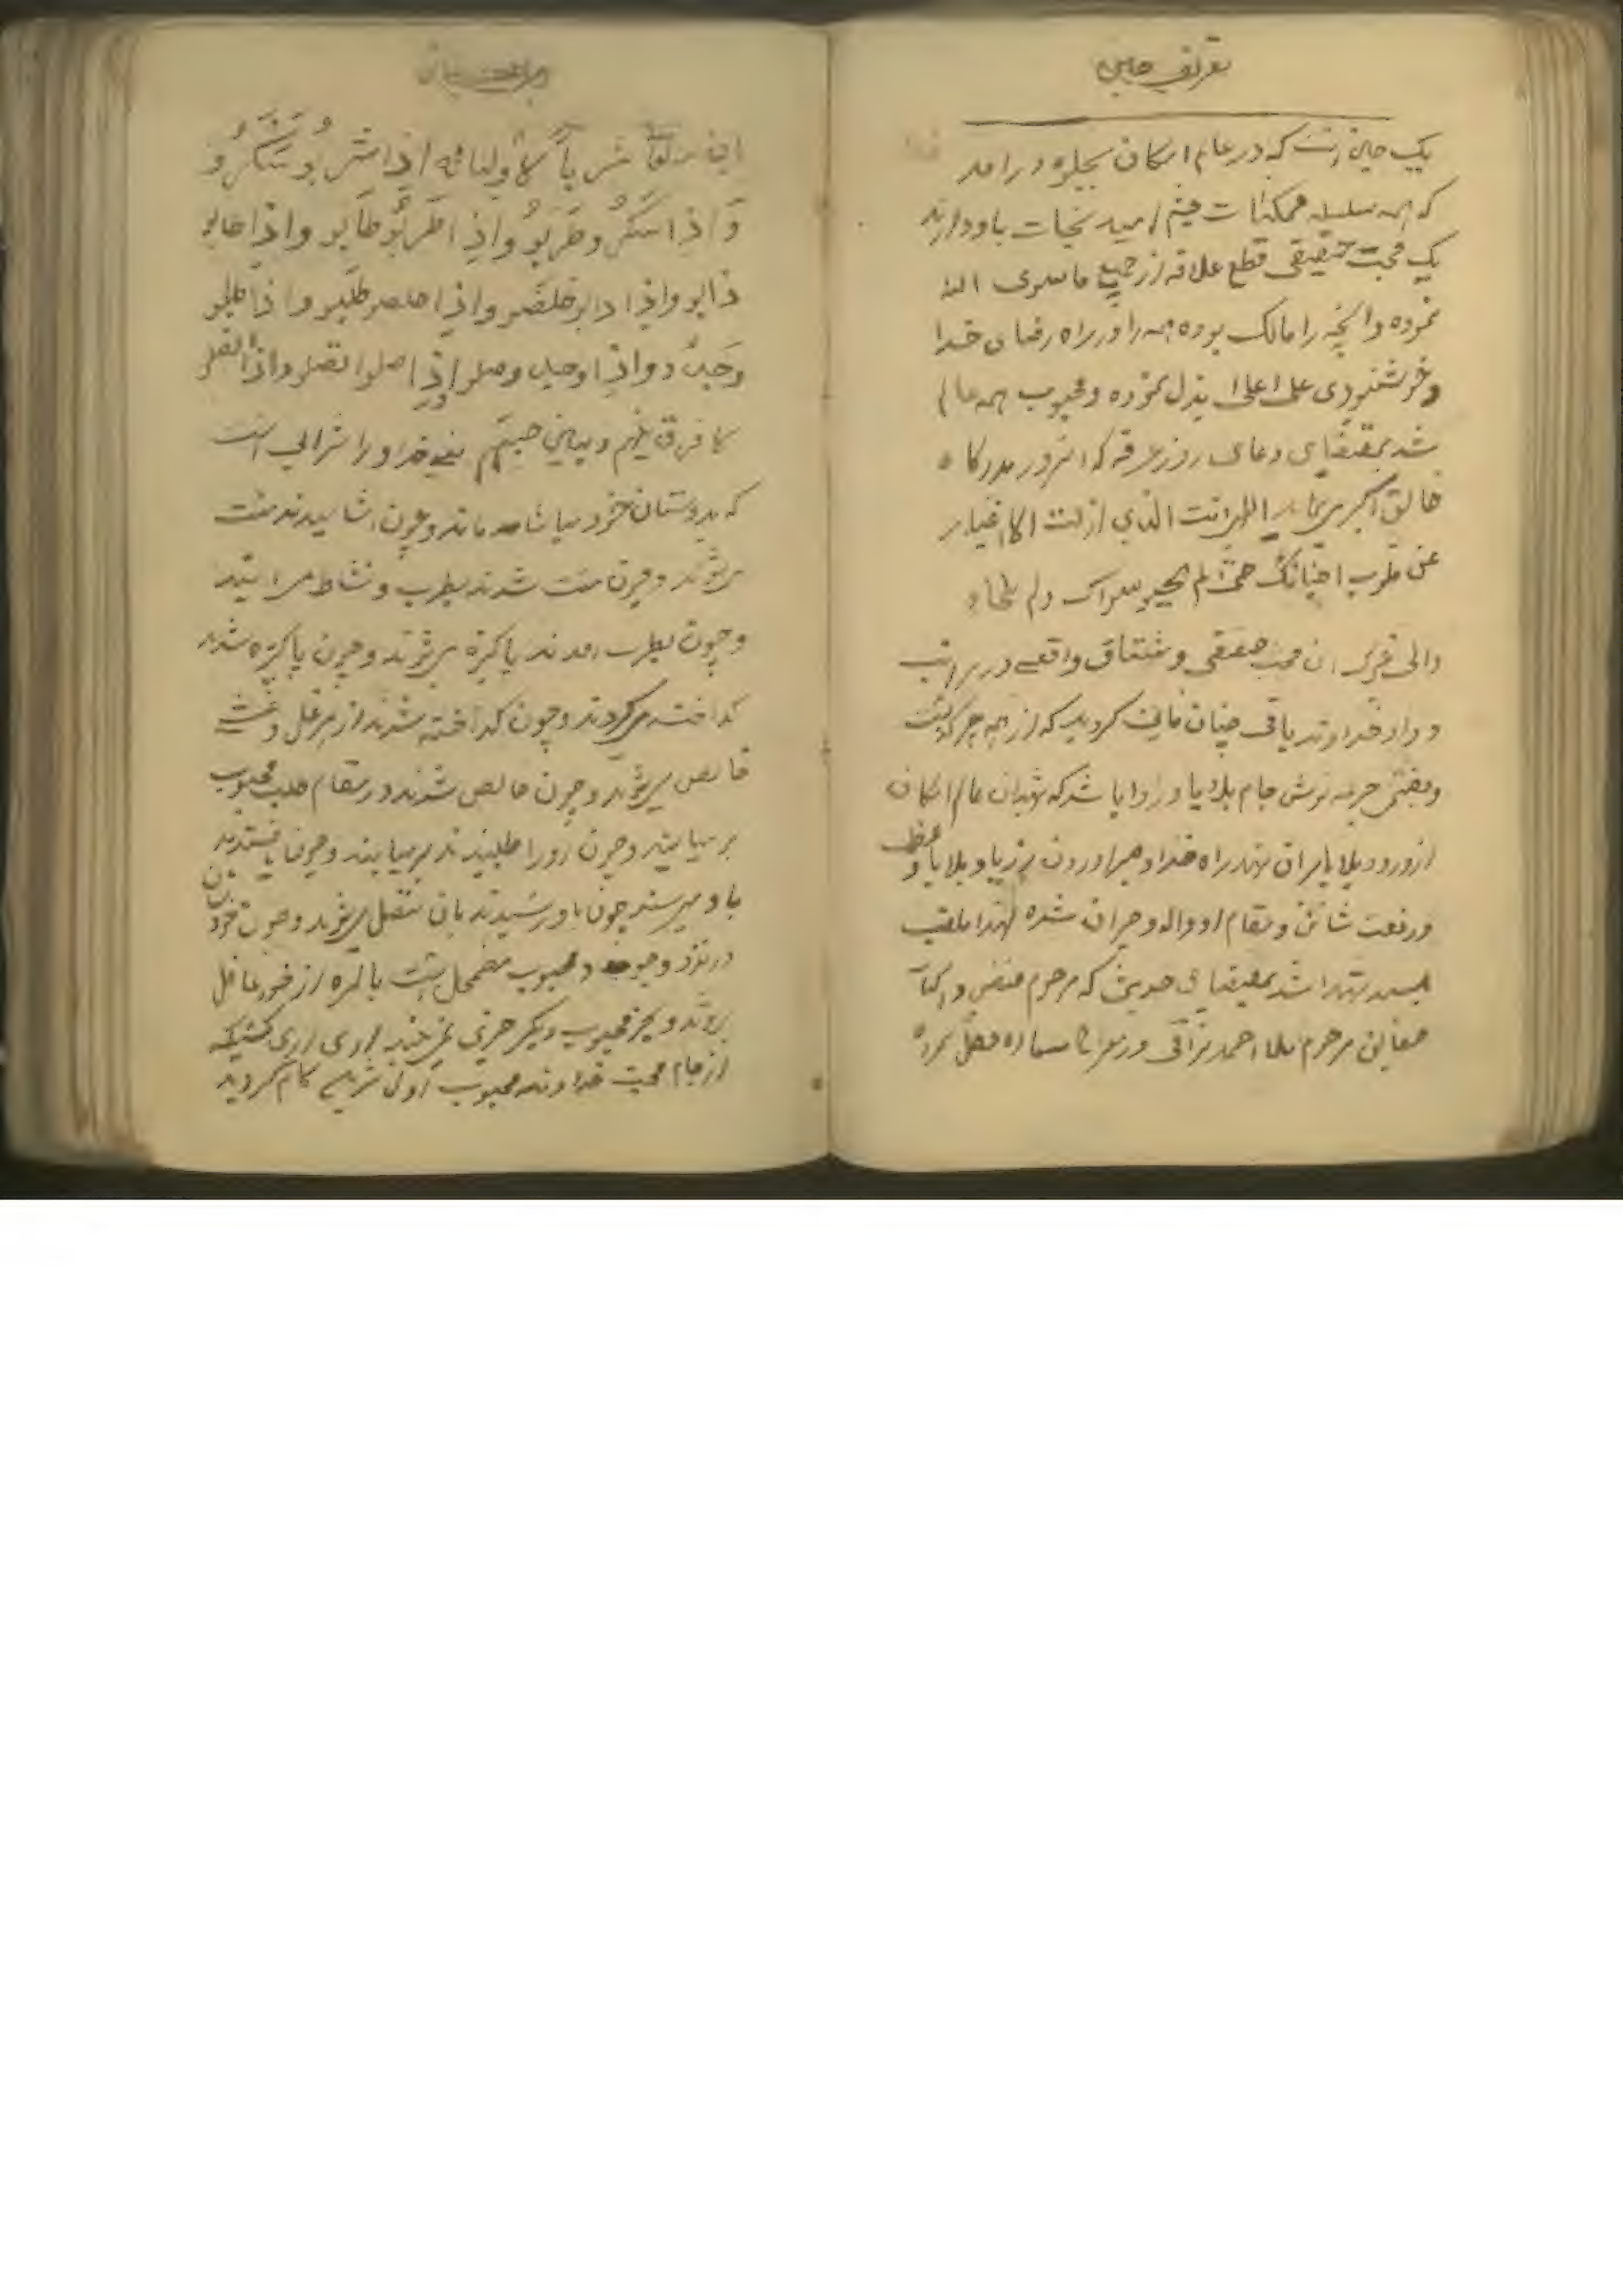 تعریف حسین
یک حسین است که در عالم امکان بجلوه درآمد
که همه سلسله ممکنات چشم امید نجات باو دارند
یک محبت حقیقی قطع علاقه از جمیع ما سوی الله
نموده و آنچه را مالک بوده همه را در راه رضای خدا
و خوشنودی علی اعلی بذل نموده و محبوب همه عالم
شد بمقتضای دعای روز عرفه که انسرور بدرگاه
خالق اکبر انت الذی ازلت الاغیار
عن قلوب احبائک حتی لم یحبو سواک ولم یلجاء
الی غیرک ان محب حقیقی و مشتاق واقعی در مراتب
وداد خداوند باقی چنان فانی گردید که از همه چیز گذشت
و جرعه نوش جام بلایا و رزایا شد که شهیدان عالم امکان
از ورود بلایا بران شهید راه خدا و رزایا و بلایا و عظم
و رفعت شان و مقام او واله و حیران شده لهذا ملقب
بسید شهدا شد بمقتضای حدیثی که مرحوم فیض و
مرحوم ملا احمد نراقی در معراج السعاده نقل نموده
ان لله تعا شرابا لاولیائه اذا شربو سکرو
و اذا سکرو طربو و اذا طربو طابو و اذا طابو
ذابو و اذا ذابو خلصو و اذا خلصو طلبو و اذا طلبو
وجدو و اذا وجدو وصلو و اذا وصلو اتصلو و اذا اتصلو
لا فرق بینهم و بین حبیبهم یعنی خداوند را شرابی است
که بدوستان خود میاشاماند و چون آشامیدند مست
میشوند و چون مست شدند بطرب و نشاط می ایند
و چون بطرب امدند پاکیزه میشوند و چون پاکیزه شدند
گداخته میگردند و چون گداخته شدند از هر غل و غش
خالص میشوند و چون خالص شدند در مقام طلب محبوب
بر میایند و چون او را طلبیدند میابند و چون یافتند
باو میرسند چون باو رسیدند بان متصل میشوند و چون
در نزد وجود محبوب مضمحل بالمره از خود غافل
روند و بجز محبوب دیگر چیزی نمی بینند اری اری کسیکه
از جام محبت خداوند محبوب ازلی شیرین کام گردید